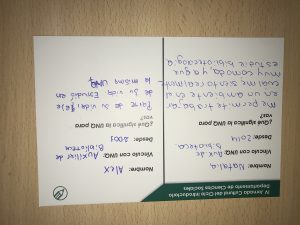 IV Jornada Cultural del Ciclo Introductorio
Departamento de Ciencias Sociales
Nombre: Natalia
Vínculo con UNQ: Aux. de
Biblioteca
Desde: 2014
¿Qué significa la UNQ para
vos?
Me permite trabajar
en un ambiente en el
cual me siento realmente
muy comoda ya que
estudié bibliotecología
Nombre: Alex
Vínculo con UNQ: Auxiliar de
Biblioteca
Desde: 2009
¿Qué significa la UNQ para
vos?
Parte de su vida,
de su vida. Estudió en
la misma UNQ